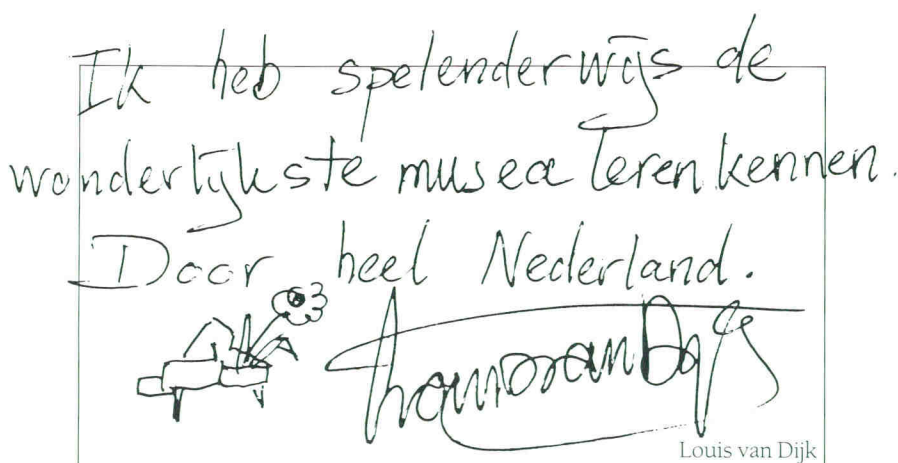 Ik heb spelenderwijs de
wonderlijkste musea leren kennen.
Door heel Nederland.
Louis van Dijk